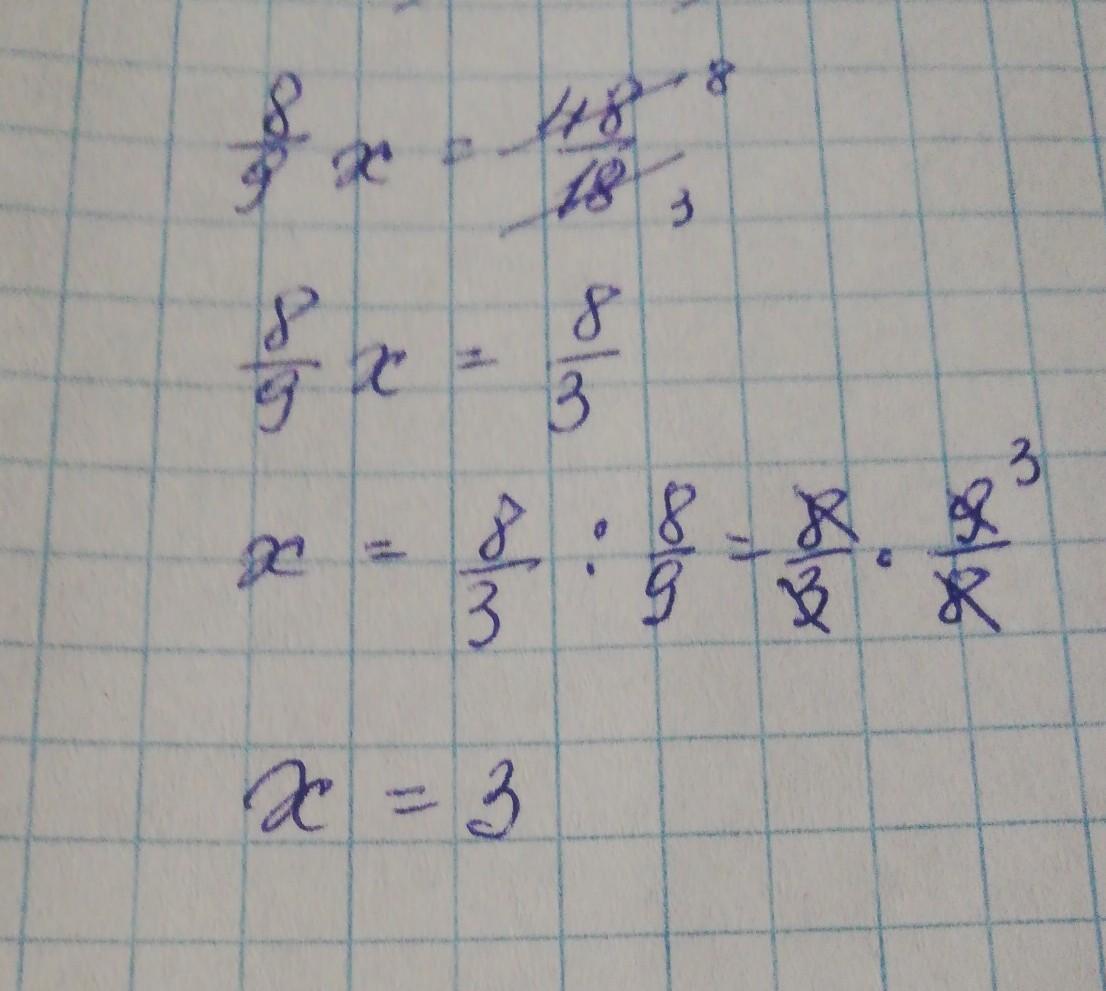 8/9 x = 48/18 8 3
8/9 x = 8/3
x = 8/3 : 8/9 = 8/3 · 9/8 3
x = 3